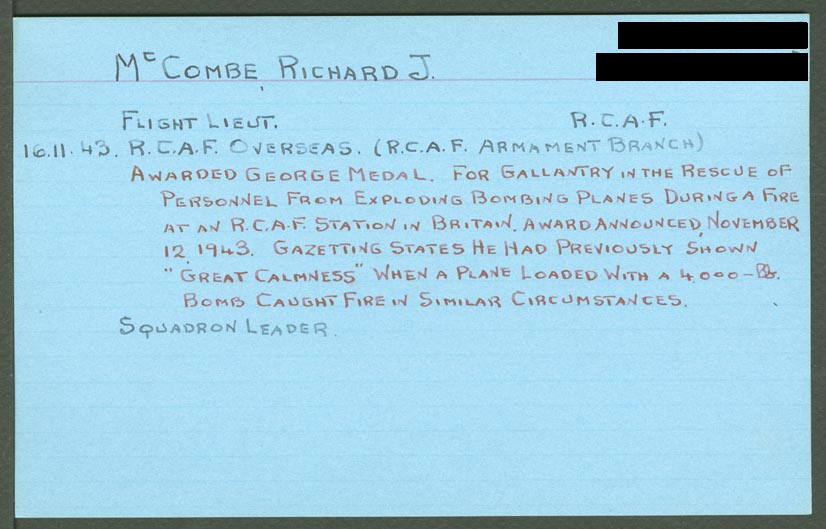 McCOMBE, RICHARD J.
FLIGHT LIEUT. R.C.A.F.
16.11.43. R.C.A.F. OVERSEAS. (R.C.A.F. ARMAMENT BRANCH)
AWARDED GEORGE MEDAL. FOR GALLANTRY IN THE RESCUE OF
PERSONNEL FROM EXPLODING BOMBING PLANES DURING A FIRE
AT AN R.C.A.F. STATION IN BRITAIN. AWARD ANNOUNCED, NOVEMBER
12, 1943. GAZETTING STATES HE HAD PREVIOUSLY SHOWN
"GREAT CALMNESS" WHEN A PLANE LOADED WITH A 4,000-lb.
BOMB CAUGHT FIRE IN SIMILAR CIRCUMSTANCES.
SQUADRON LEADER.